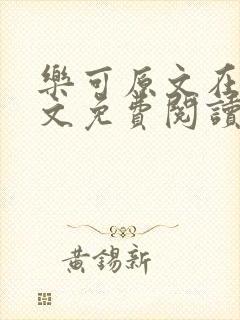 樂可原文在
文免費閱讀
黃錫新